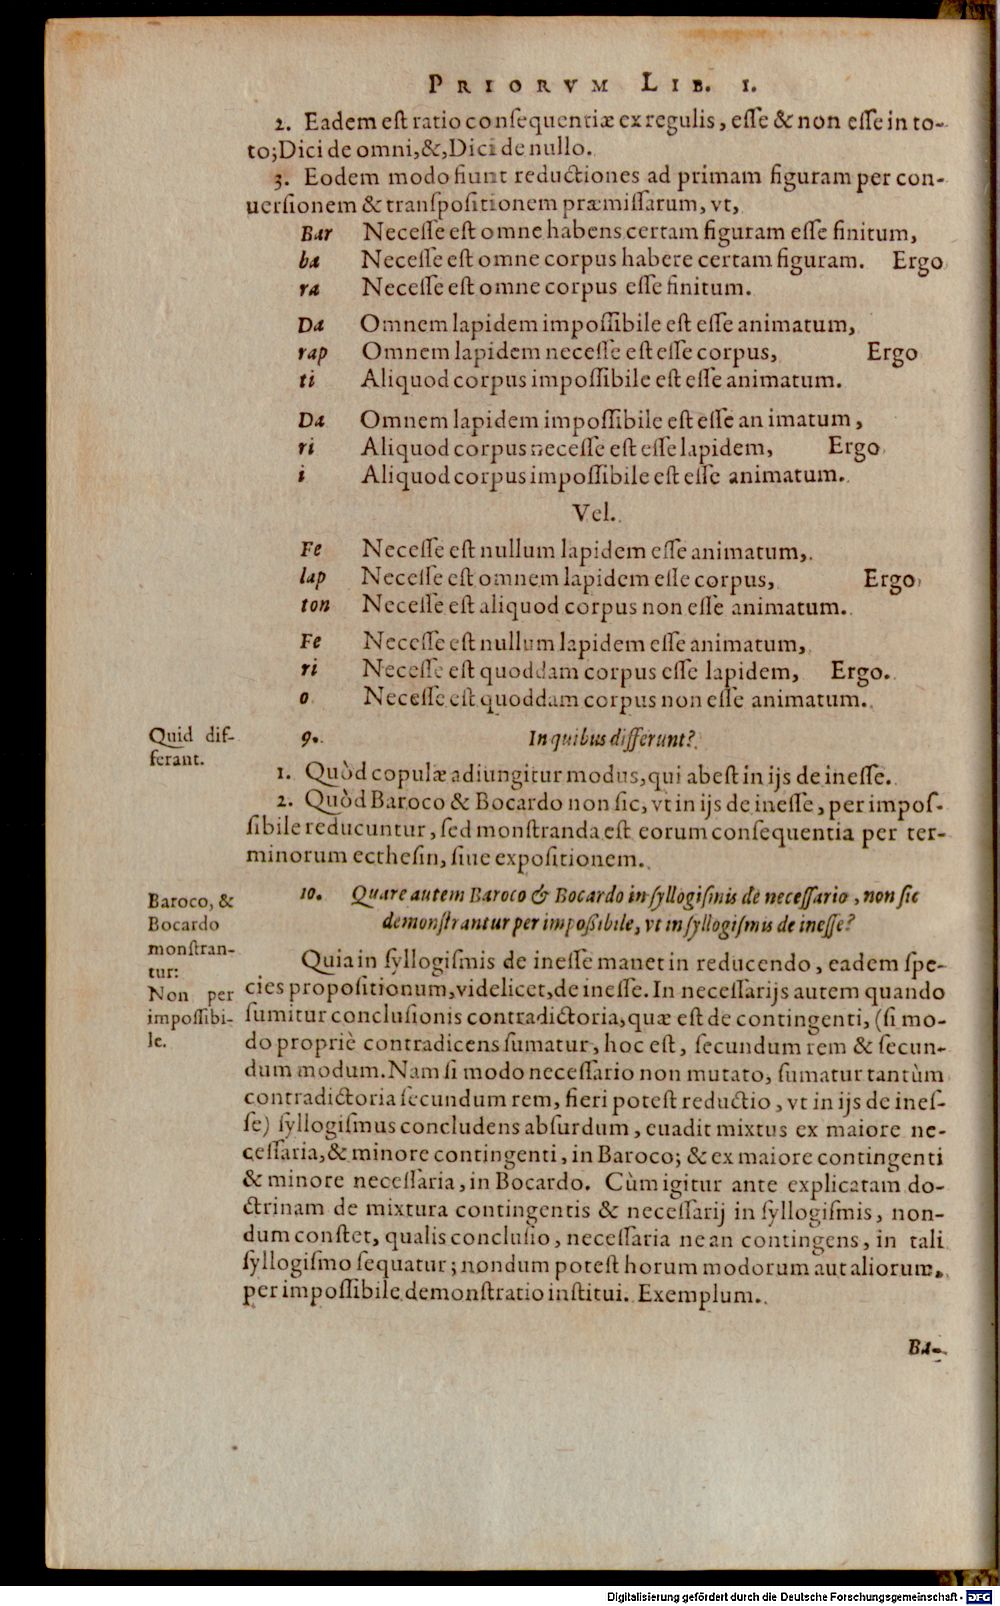 PRIORVM LIB. I.
2. Eadem est ratio consequentiæ ex regulis, esse & non esse in to-
to; Dici de omni, &, Dici de nullo.
3. Eodem modo fiunt reductiones ad primam figuram per con-
uersionem & transpositionem præmissarum, vt,
Bar Necesse est omne habens certam figuram esse finitum,
ba Necesse est omne corpus habere certam figuram. Ergo
ra Necesse est omne corpus esse finitum.
Da Omnem lapidem impossibile est esse animatum,
rap Omnem lapidem necesse est esse corpus, Ergo
ti Aliquod corpus impossibile est esse animatum.
Da Omnem lapidem impossibile est esse animatum,
ri Aliquod corpus necesse est esse lapidem, Ergo
i Aliquod corpus impossibile est esse animatum.
Vel.
Fe Necesse est nullum lapidem esse animatum,
lap Necesse est omnem lapidem esse corpus, Ergo
ton Necesse est aliquod corpus non esse animatum.
Fe Necesse est nullum lapidem esse animatum,
ri Necesse est quoddam corpus esse lapidem, Ergo.
o Necesse est quoddam corpus non esse animatum.
Quid dif-
ferant.
9. In quibus differunt?
1. Quòd copulæ adiungitur modus, qui abest in ijs de inesse.
2. Quòd Baroco & Bocardo non sic, vt in ijs de inesse, per impos-
sibile reducuntur, sed monstranda est eorum consequentia per ter-
minorum ecthesin, siue expositionem.
Baroco, &
Bocardo
monstran-
tur:
Non per
impossibi-
le.
10. Quare autem Baroco & Bocardo in syllogismis de necessario, non sic
demonstrantur per impoßibile, vt in syllogismis de inesse?
Quia in syllogismis de inesse manet in reducendo, eadem spe-
cies propositionum, videlicet, de inesse. In necessarijs autem quando
sumitur conclusionis contradictoria, quæ est de contingenti, (si mo-
do propriè contradicens sumatur, hoc est, secundum rem & secun-
dum modum. Nam si modo necessario non mutato, sumatur tantùm
contradictoria secundum rem, fieri potest reductio, vt in ijs de ines-
se) syllogismus concludens absurdum, euadit mixtus ex maiore ne-
cessaria, & minore contingenti, in Baroco; & ex maiore contingenti
& minore necessaria, in Bocardo. Cùm igitur ante explicatam do-
ctrinam de mixtura contingentis & necessarij in syllogismis, non-
dum constet, qualis conclusio, necessaria ne an contingens, in tali
syllogismo sequatur; nondum potest horum modorum aut aliorum
per impossibile demonstratio institui. Exemplum.
Ba-
Digitalisierung gefördert durch die Deutsche Forschungsgemeinschaft - DFG